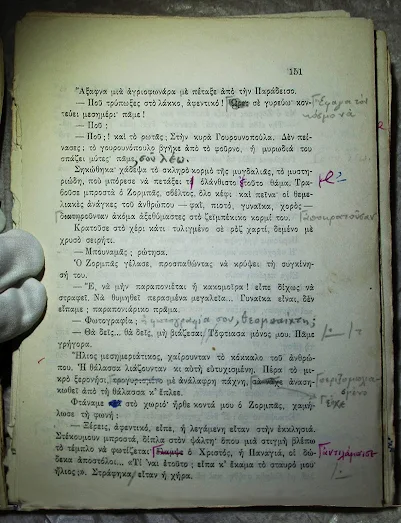 151
Ἄξαφνα μιὰ ἀγριοφωνάρα μὲ πέταξε ἀπὸ τὴν Παράδεισο.
— Ποῦ τρύπωξες στὸ λάκκο, ἀφεντικό! σὲ γυρεύω κον-
τεύει μεσημέρι· πᾶμε!
— Ποῦ;
— Ποῦ; ! καὶ τὸ ρωτᾶς; Στὴν κυρὰ Γουρουνοπούλα. Δὲν πεί-
νασες; τὸ γουρουνόπουλο βγῆκε ἀπὸ τὸ φοῦρνο, ἡ μυρωδιά του
σπάζει μύτες· πᾶμε, σοῦ λέω.
Σηκώθηκα· χάδεψα τὸ σκληρὸ κορμὸ τῆς μυγδαλιᾶς, τὸ μυστη-
ριώδη, ποὺ μπόρεσε νὰ πετάξει τ ὁλάνθιστο ἐτοῦτο θάμα. Τρα-
βοῦσε μπροστὰ ὁ Ζορμπᾶς, σβέλτος, ὅλο κέφι καὶ πείνα· οἱ θεμε-
λιακὲς ἀνάγκες τοῦ ἀνθρώπου — φαΐ, πιοτό, γυναίκα, χορὸς —
διατηροῦνταν ἀκόμα ἀξεθύμαστες στὸ ζεϊμπέκικο κορμί του.
Κρατοῦσε στὸ χέρι κάτι τυλιγμένο σὲ ρὸζ χαρτί, δεμένο μὲ
χρυσὸ σειρήτι.
— Μπουναμᾶς; ρώτησα.
Ὁ Ζορμπᾶς γέλασε, προσπαθώντας νὰ κρύψει τὴ συγκίνη-
σή του.
— Ἔ, νὰ μὴν παραπονιέται ἡ κακομοίρα! εἶπε δίχως νὰ
στραφεῖ. Νὰ θυμηθεῖ περασμένα μεγαλεῖα... Γυναίκα εἶναι, δὲν
εἴπαμε; παραπονιάρικο πρᾶμα.
— Φωτογραφία; ἡ φωτογραφία σου, θεομπαίχτη;
— Θὰ δεῖς... θὰ δεῖς, μὴ βιάζεσαι! Τόφτιασα μόνος μου. Πᾶμε
γρήγορα.
Ἥλιος μεσημεριάτικος, χαίρουνταν τὸ κόκκαλο τοῦ ἀνθρώ-
που. Ἡ θάλασσα λιάζουνταν κι αὐτὴ εὐτυχισμένη. Πέρα τὸ μι-
κρὸ ξερονήσι, μὲ ἀνάλαφρη πάχνη, ἀναση-
κωθεῖ ἀπὸ τὴ θάλασσα κ' ἔπλεε.
Φτάναμε στὸ χωριό· ἦρθε κοντά μου ὁ Ζορμπᾶς, χαμή-
λωσε τὴ φωνή:
— Ξέρεις, ἀφεντικό, εἶπε, ἡ λεγάμενη εἶταν στὴν ἐκκλησιά.
Στέκουμουν μπροστά, δίπλα στὸν ψάλτη· ὅπου μιὰ στιγμὴ βλέπω
τὸ τέμπλο νὰ φωτίζεται. ὁ Χριστός, ἡ Παναγιά, οἱ δώ-
δεκα ἀπόστολοι... «Τί 'ναι ἐτοῦτο; εἶπα κ' ἔκαμα τὸ σταυρό μου·
ἥλιος;». Στράφηκα, εἶταν ἡ χήρα.